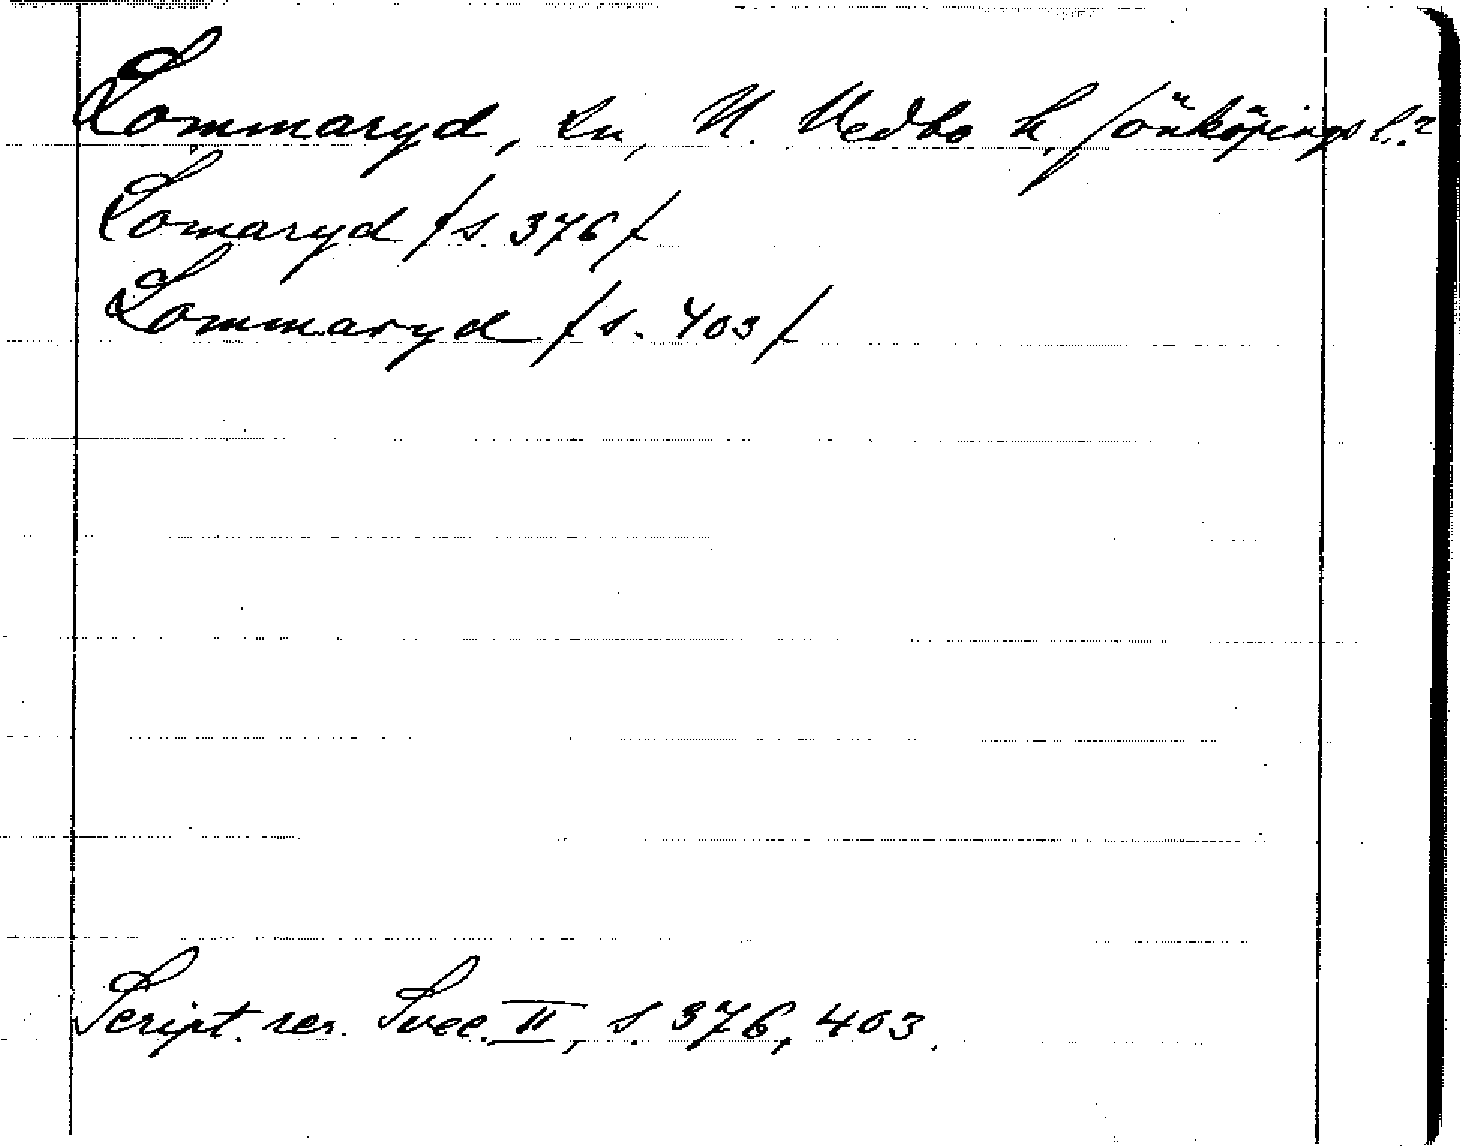 Lommaryd, sn, N. Vedbo h, Jönköpings l.?
Lomaryd /s. 376/
Lommaryd /s. 403/
Script. rer. Svec. II, s. 376, 403.